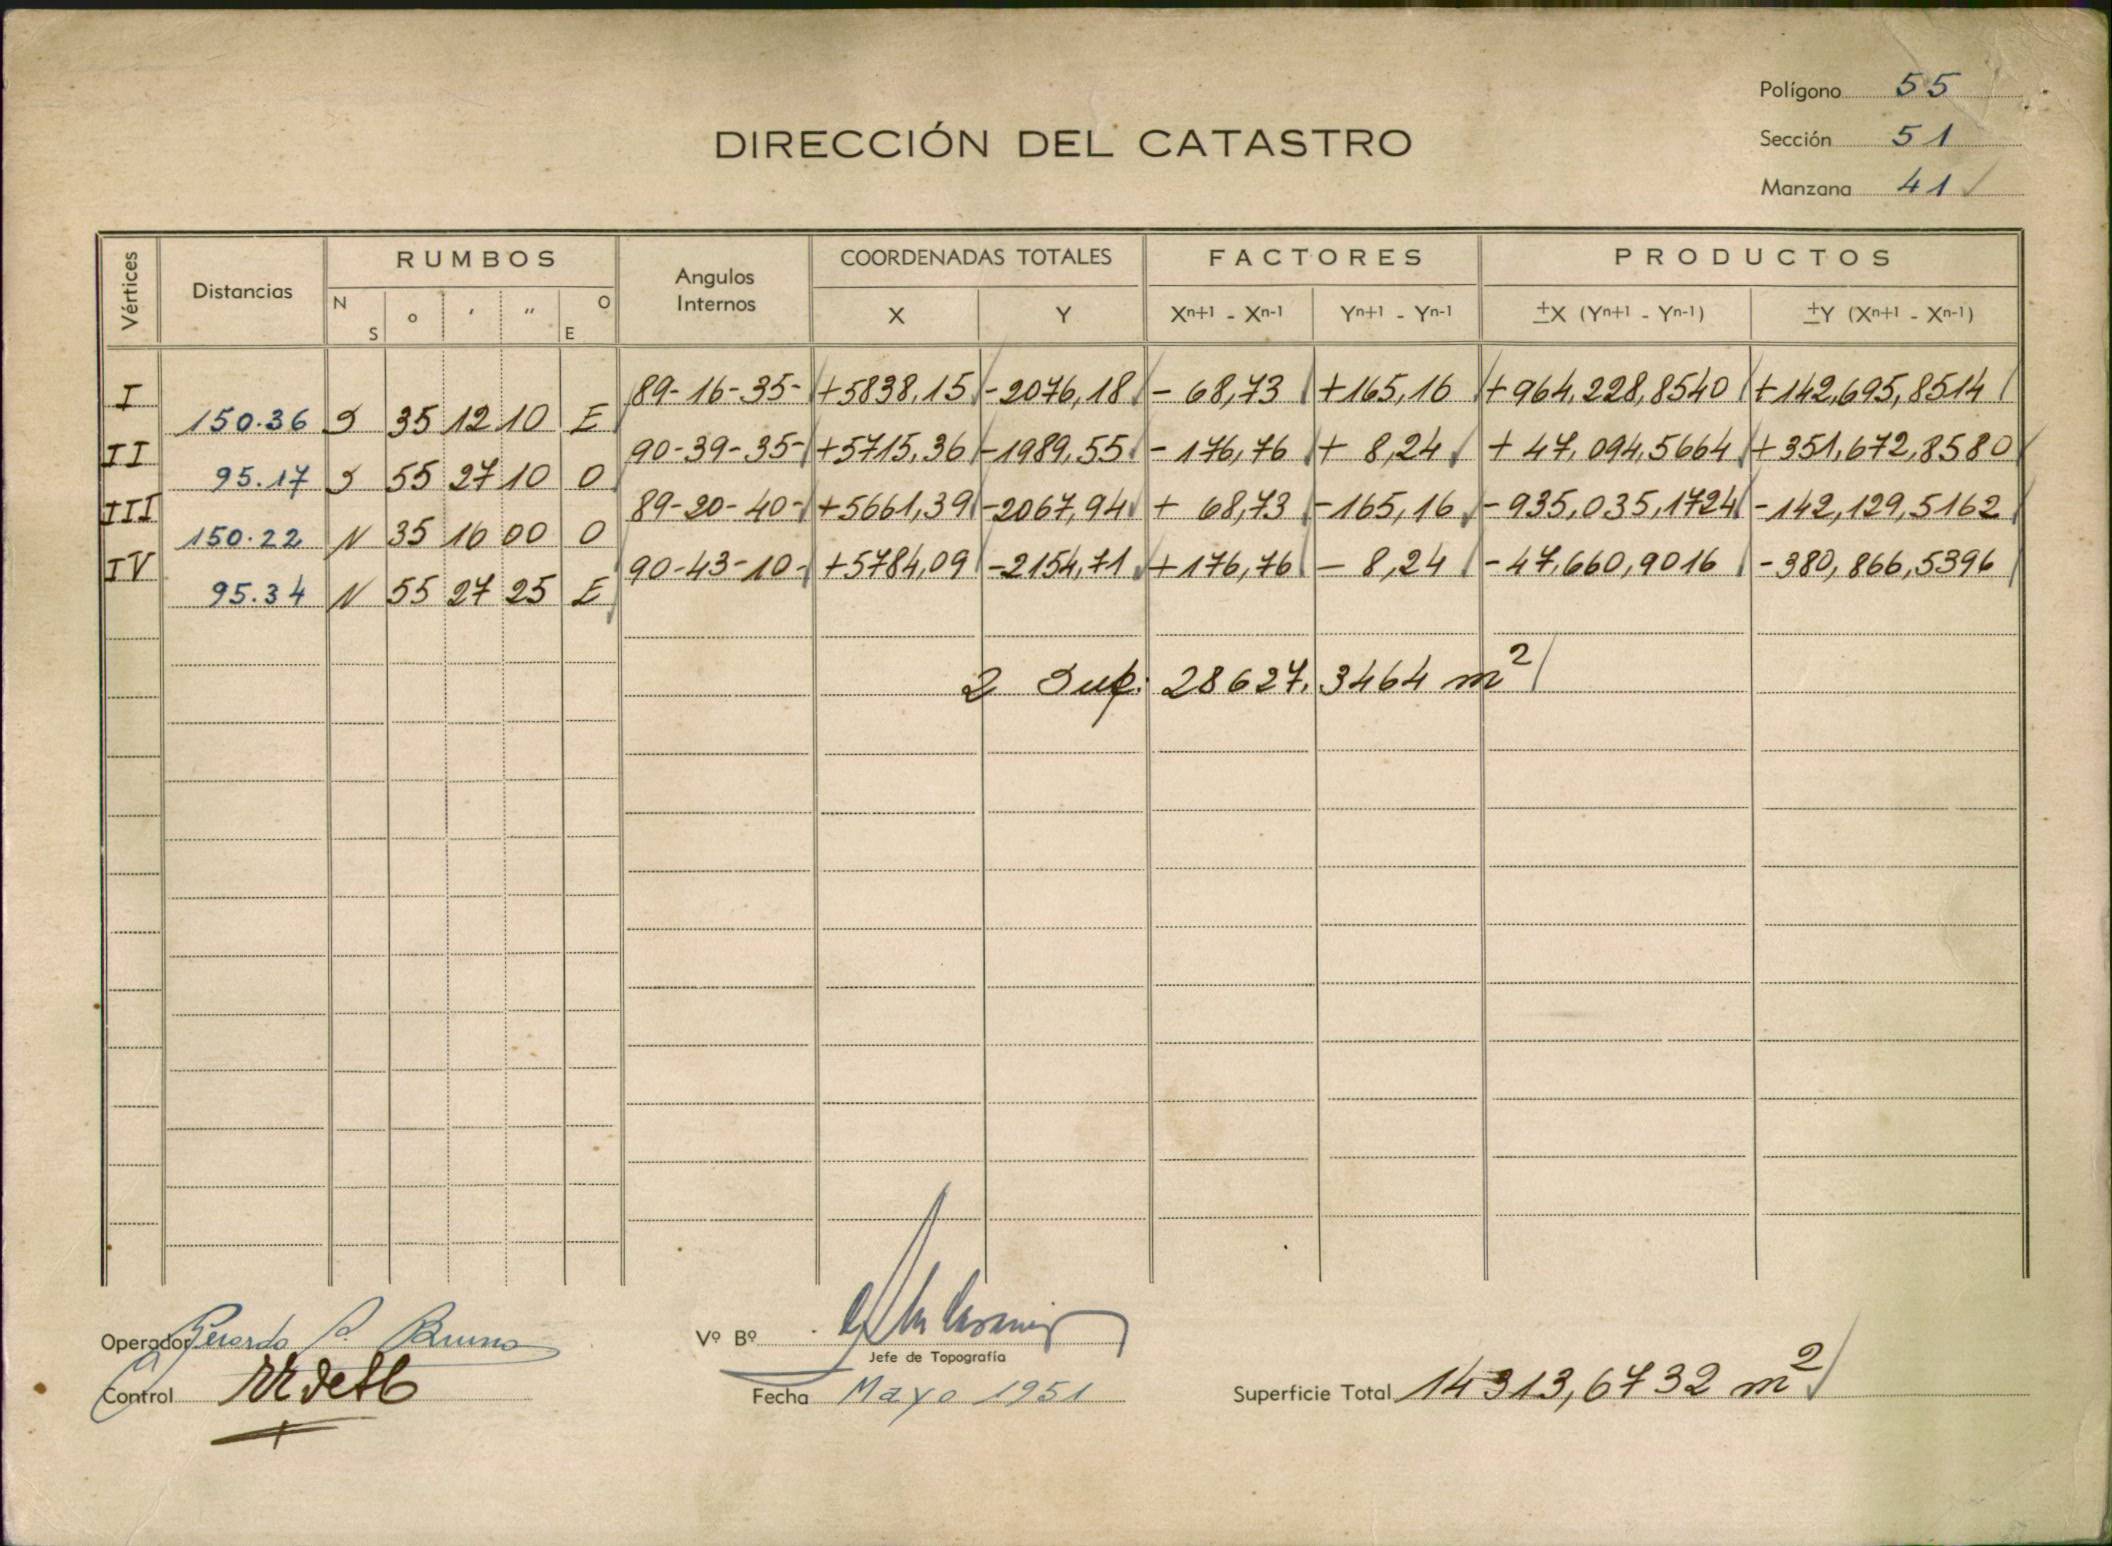 Polígono 55
DIRECCIÓN DEL CATASTRO
Sección 51
Manzana 41
Vértices Distancias RUMBOS Angulos Internos COORDENADAS TOTALES FACTORES PRODUCTOS
N S o ′ ″ O E X Y Xn+1 - Xn-1 Yn+1 - Yn-1 ±X (Yn+1 - Yn-1) ±Y (Xn+1 - Xn-1)
I 89-16-35- +5838,15 -2076,18 - 68,73 +165,16 +964,228,8540 +142,695,8514
150.36 S 35 12 10 E
II 90-39-35- +5715,36 -1989,55 - 176,76 + 8,24 + 47,094,5664 +351,672,8580
95.17 S 55 27 10 O
III 89-20-40- +5661,39 -2067,94 + 68,73 -165,16 -935,035,1724 -142,129,5162
150.22 N 35 16 00 O
IV 90-43-10- +5784,09 -2154,71 +176,76 - 8,24 -47,660,9016 -380,866,5396
95.34 N 55 27 25 E
2 Sup. 28627,3464 m²
Operador Gerardo P. Bruno
Vº Bº
Jefe de Topografía
Control
Fecha Mayo 1951
Superficie Total 14313,6732 m²